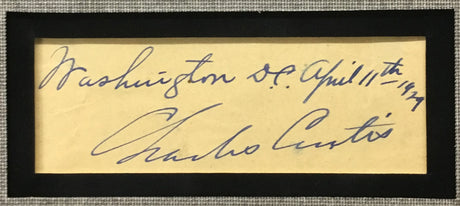 Washington D.C. April 11th - 1929
Charles Curtis